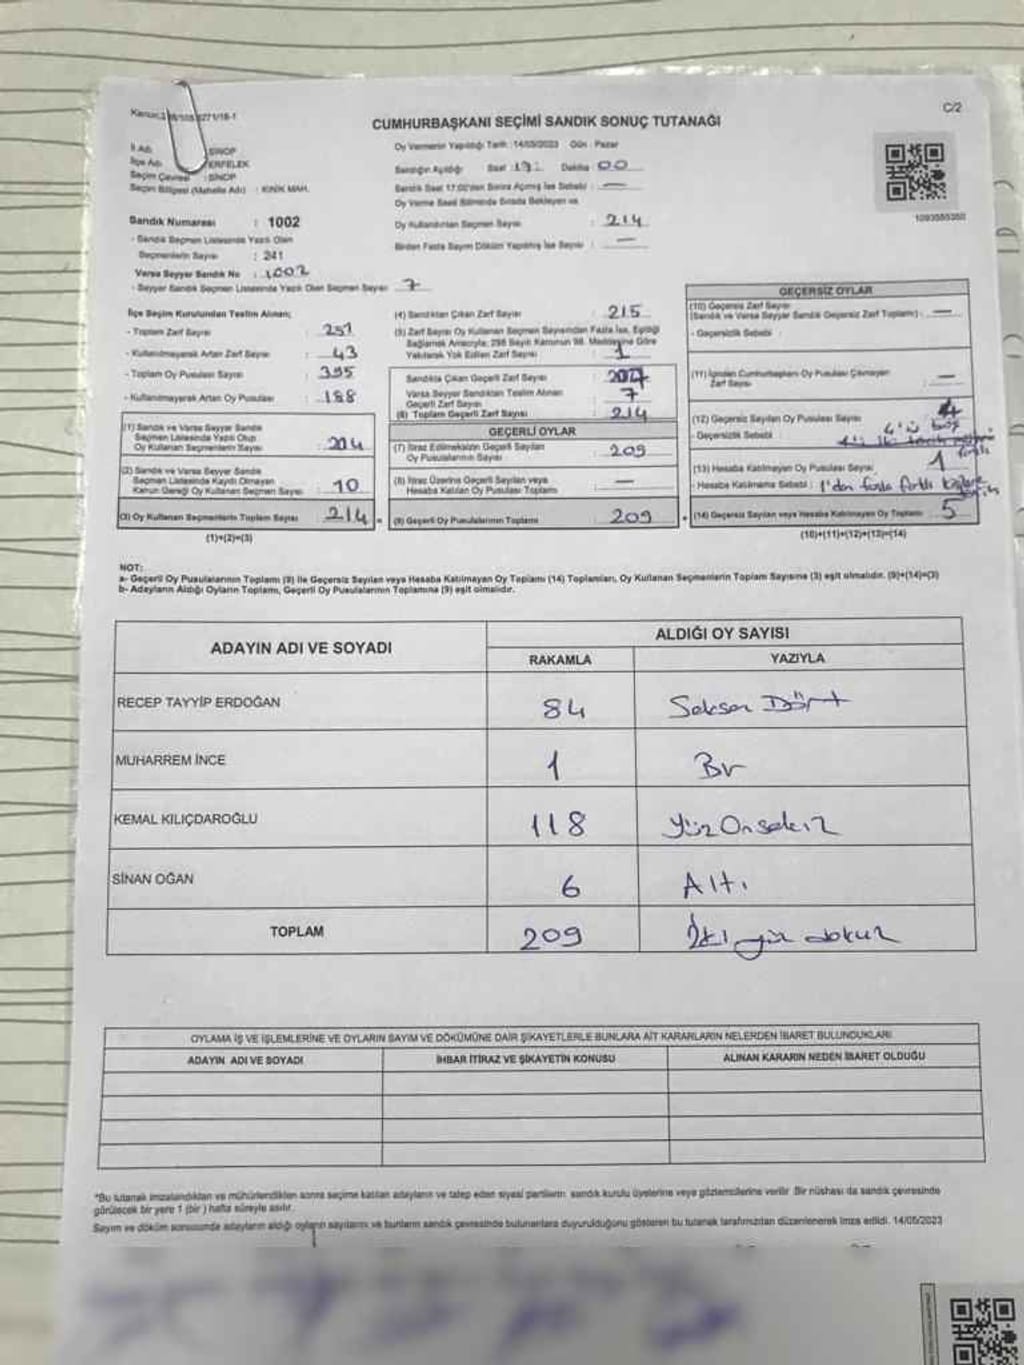 C/2
CUMHURBAŞKANI SEÇİMİ SANDIK SONUÇ TUTANAĞI
İl Adı : SİNOP
İlçe Adı : ERFELEK
Seçim Çevresi : SİNOP
Seçim Bölgesi (Mahalle Adı) : KINIK MAH.
Sandık Numarası : 1002
- Sandık Seçmen Listesinde Yazılı Olan
Seçmenlerin Sayısı : 241
Varsa Seyyar Sandık No : 1002
- Seyyar Sandık Seçmen Listesinde Yazılı Olan Seçmen Sayısı : 7
Oy Vermenin Yapıldığı Tarih : 14/05/2023 Gün : Pazar
Sandığın Açıldığı Saat Dakika 00
Sandık Saat 17:00'den Sonra Açılmış İse Sebebi : —
Oy Verme Saati Bitiminde Sırada Bekleyen ve
Oy Kullandırılan Seçmen Sayısı : 214
Birden Fazla Sayım Döküm Yapılmış İse Sayısı : —
1093585350
İlçe Seçim Kurulundan Teslim Alınan;
- Toplam Zarf Sayısı : 251
- Kullanılmayarak Artan Zarf Sayısı : 43
- Toplam Oy Pusulası Sayısı : 395
- Kullanılmayarak Artan Oy Pusulası : 188
(1) Sandık ve Varsa Seyyar Sandık
Seçmen Listesinde Yazılı Olup
Oy Kullanan Seçmenlerin Sayısı : 204
(2) Sandık ve Varsa Seyyar Sandık
Seçmen Listesinde Kaydı Olmayan
Kanun Gereği Oy Kullanan Seçmen Sayısı : 10
(3) Oy Kullanan Seçmenlerin Toplam Sayısı : 214
(1)+(2)=(3)
(4) Sandıktan Çıkan Zarf Sayısı : 215
(5) Zarf Sayısı Oy Kullanan Seçmen Sayısından Fazla İse, Eşitliği
Sağlamak Amacıyla; 298 Sayılı Kanunun 98. Maddesine Göre
Yakılarak Yok Edilen Zarf Sayısı : 1
Sandıkta Çıkan Geçerli Zarf Sayısı : 207
Varsa Seyyar Sandıktan Teslim Alınan
Geçerli Zarf Sayısı : 7
(6) Toplam Geçerli Zarf Sayısı : 214
GEÇERLİ OYLAR
(7) İtiraz Edilmeksizin Geçerli Sayılan
Oy Pusulalarının Sayısı : 209
(8) İtiraz Üzerine Geçerli Sayılan veya
Hesaba Katılan Oy Pusulası Toplamı : —
(9) Geçerli Oy Pusulalarının Toplamı : 209
GEÇERSİZ OYLAR
(10) Geçersiz Zarf Sayısı
(Sandık ve Varsa Seyyar Sandık Geçersiz Zarf Toplamı) : —
- Geçersizlik Sebebi :
(11) İçinden Cumhurbaşkanı Oy Pusulası Çıkmayan
Zarf Sayısı : —
(12) Geçersiz Sayılan Oy Pusulası Sayısı : 4
- Geçersizlik Sebebi : 4'ü boş
(13) Hesaba Katılmayan Oy Pusulası Sayısı : 1
- Hesaba Katılmama Sebebi : 1'den fazla farklı
(14) Geçersiz Sayılan veya Hesaba Katılmayan Oy Toplamı : 5
(10)+(11)+(12)+(13)=(14)
NOT:
a- Geçerli Oy Pusulalarının Toplamı (9) ile Geçersiz Sayılan veya Hesaba Katılmayan Oy Toplamı (14) Toplamları, Oy Kullanan Seçmenlerin Toplam Sayısına (3) eşit olmalıdır. (9)+(14)=(3)
b- Adayların Aldığı Oyların Toplamı, Geçerli Oy Pusulalarının Toplamına (9) eşit olmalıdır.
ADAYIN ADI VE SOYADI ALDIĞI OY SAYISI
RAKAMLA YAZIYLA
RECEP TAYYİP ERDOĞAN 84 Seksen Dört
MUHARREM İNCE 1 Bir
KEMAL KILIÇDAROĞLU 118 Yüz Onsekiz
SİNAN OĞAN 6 Altı
TOPLAM 209 İki yüz dokuz
OYLAMA İŞ VE İŞLEMLERİNE VE OYLARIN SAYIM VE DÖKÜMÜNE DAİR ŞİKAYETLERLE BUNLARA AİT KARARLARIN NELERDEN İBARET BULUNDUKLARI
ADAYIN ADI VE SOYADI İHBAR İTİRAZ VE ŞİKAYETİN KONUSU ALINAN KARARIN NEDEN İBARET OLDUĞU
*Bu tutanak imzalandıktan ve mühürlendikten sonra seçime katılan adayların ve talep eden siyasi partilerin sandık kurulu üyelerine veya gözlemcilerine verilir. Bir nüshası da sandık çevresinde
görülecek bir yere 1 (bir) hafta süreyle asılır.
Sayım ve döküm sonucunda adayların aldığı oyların sayılarını ve bunların sandık çevresinde bulunanlara duyurulduğunu gösteren bu tutanak tarafımızdan düzenlenerek imza edildi. 14/05/2023